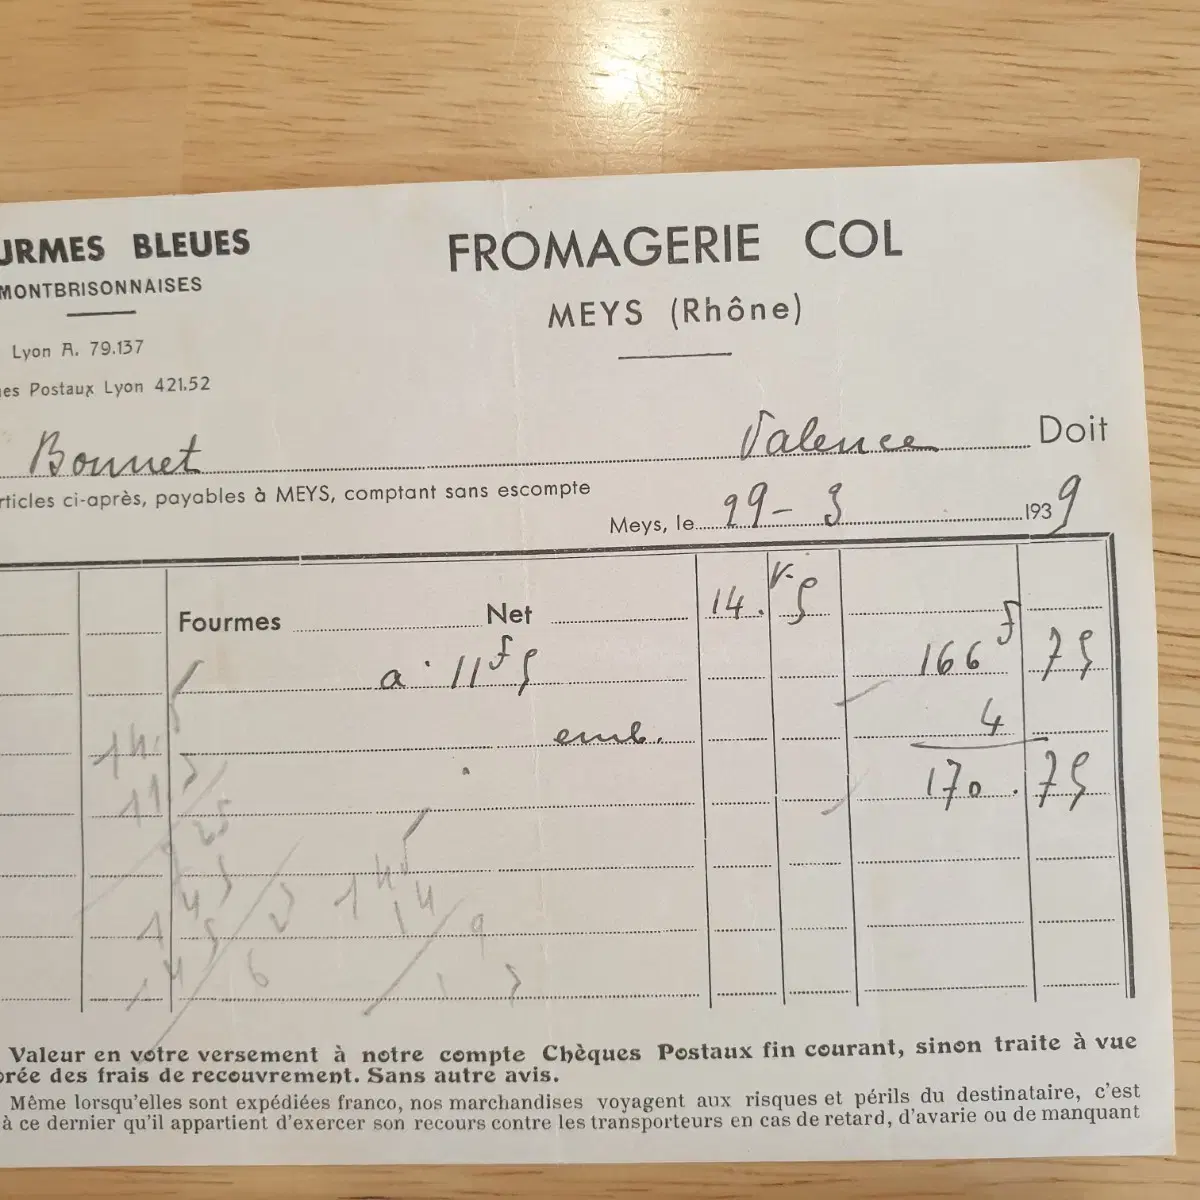 URMES BLEUES
MONTBRISONNAISES
Lyon A. 79.137
es Postaux Lyon 421.52
FROMAGERIE COL
MEYS (Rhône)
Bonnet Valence Doit
rticles ci-après, payables à MEYS, comptant sans escompte
Meys, le 29-3 1939
Fourmes Net 14. k. 5
a 11 f 5 166 f 75
emb. 4
170. 75
Valeur en votre versement à notre compte Chèques Postaux fin courant, sinon traite à vue
orée des frais de recouvrement. Sans autre avis.
Même lorsqu'elles sont expédiées franco, nos marchandises voyagent aux risques et périls du destinataire, c'est
à ce dernier qu'il appartient d'exercer son recours contre les transporteurs en cas de retard, d'avarie ou de manquant